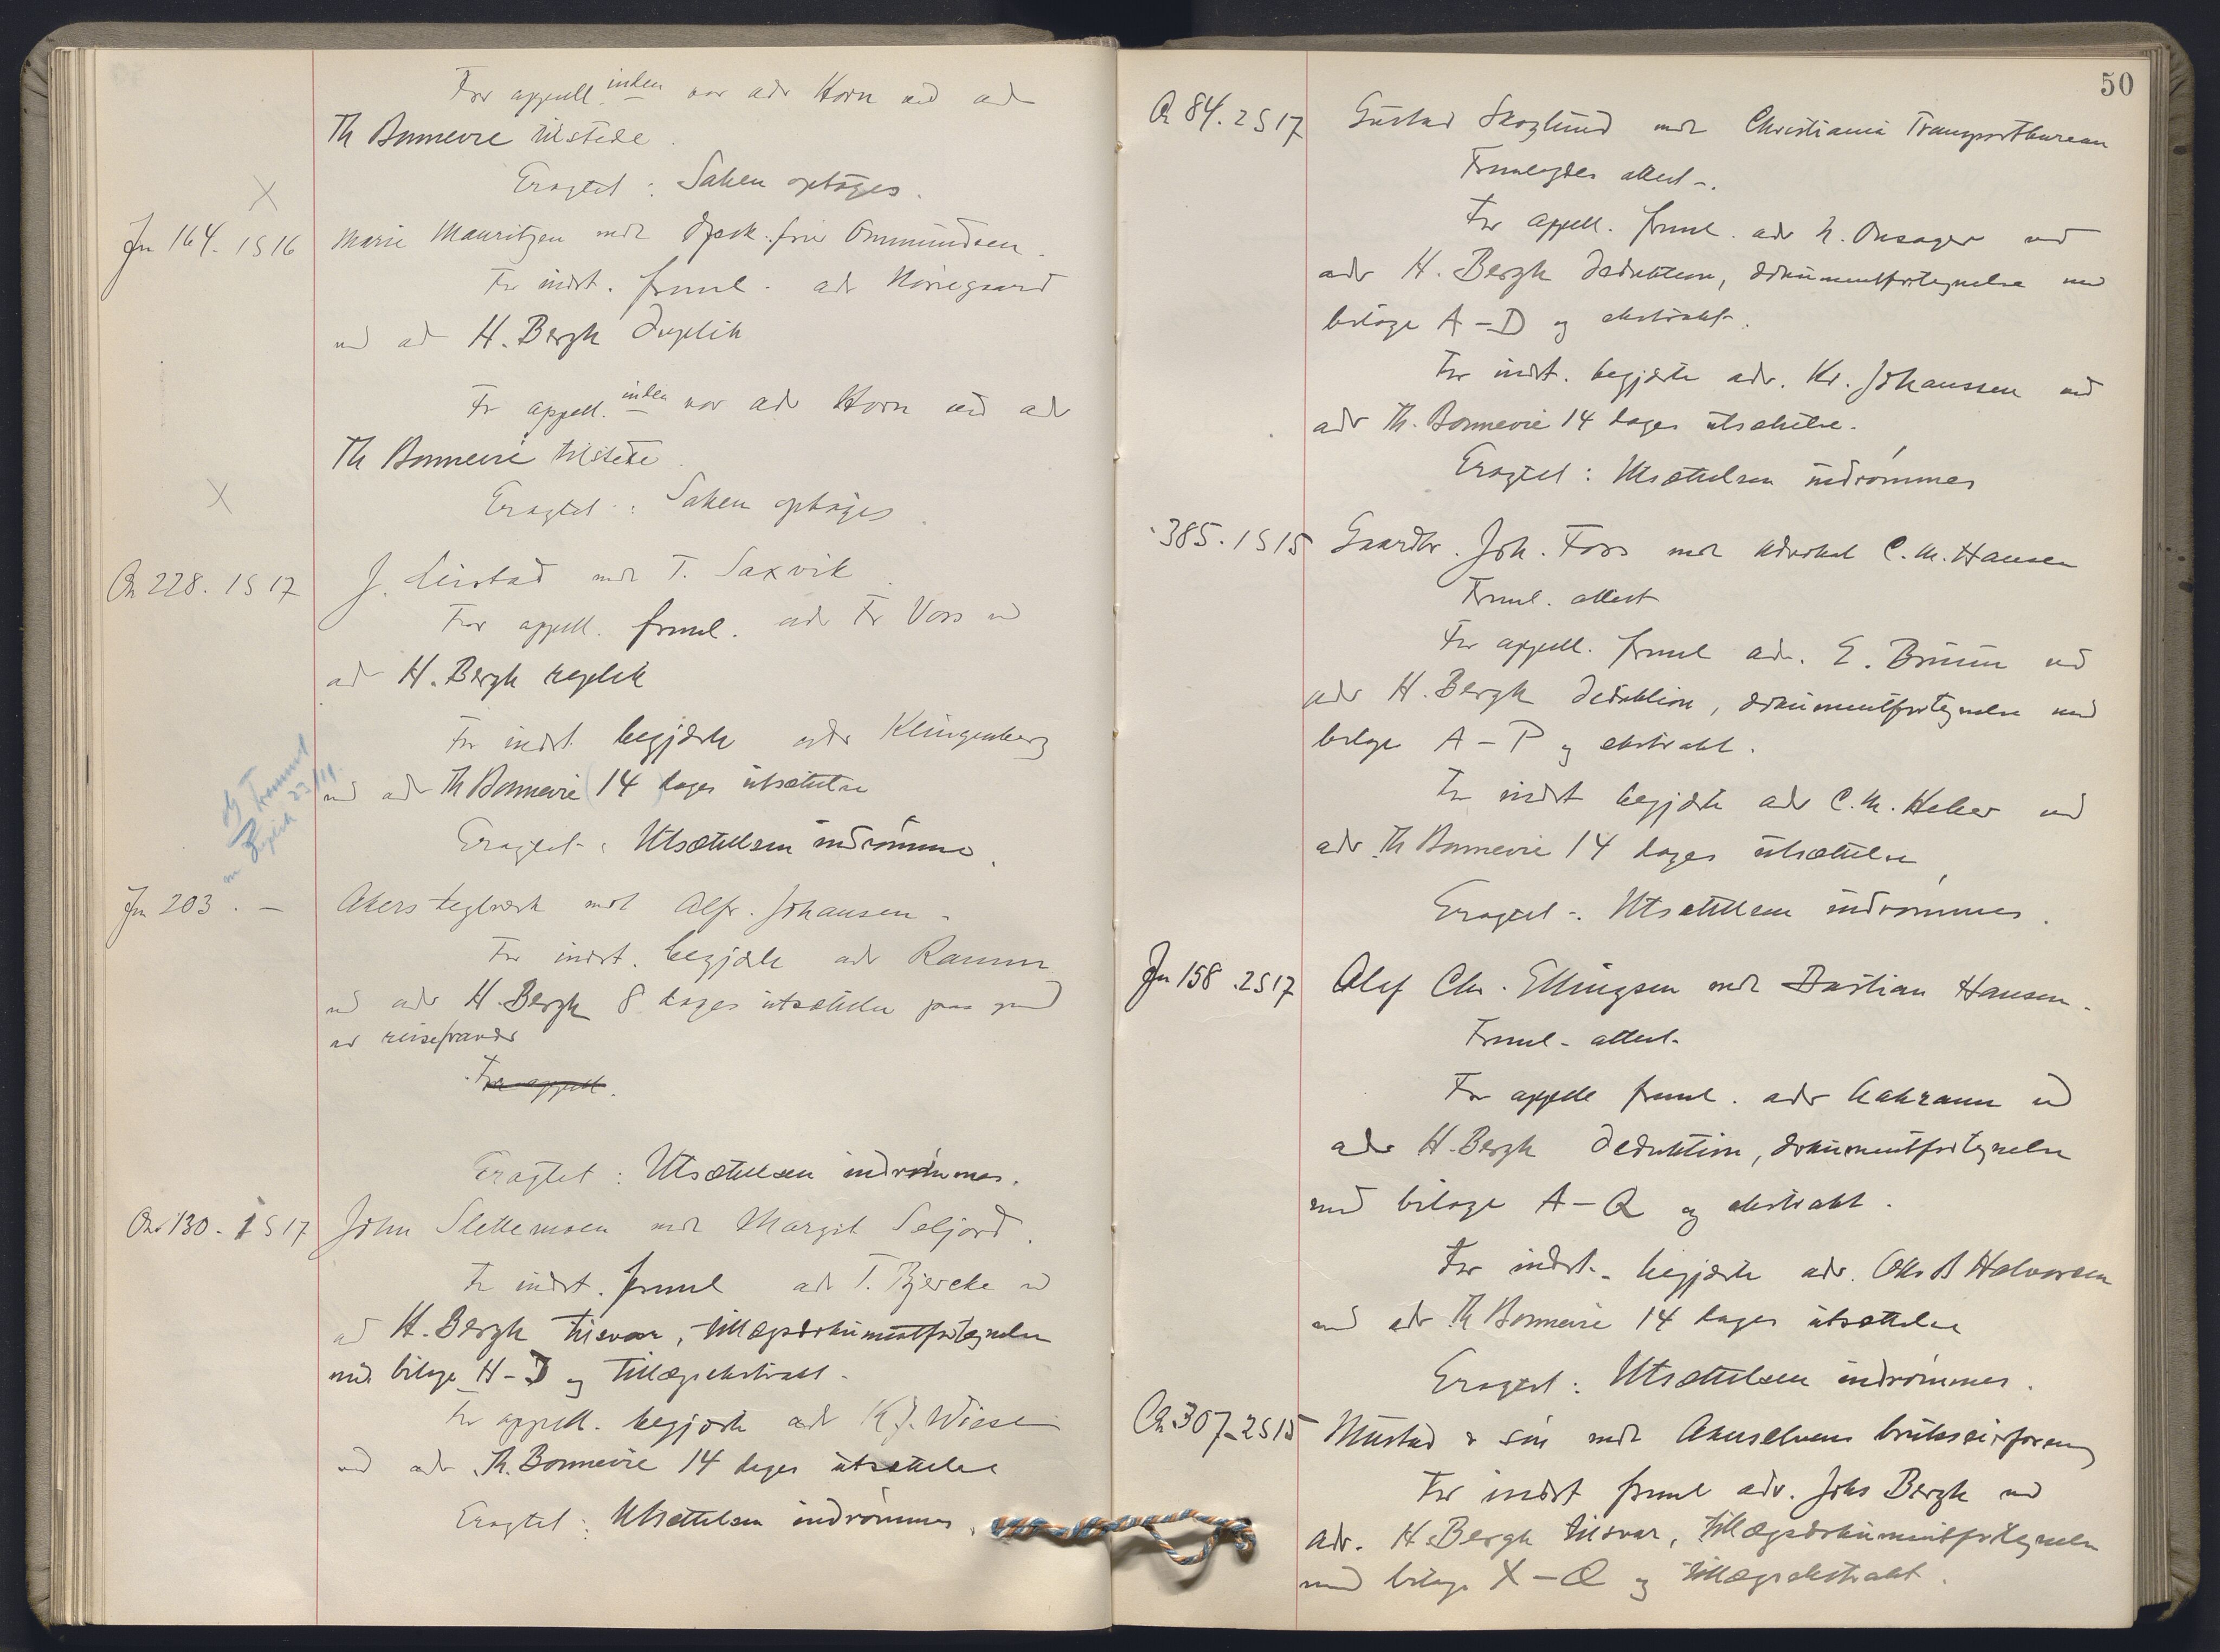 For appell. inten var adv Horn ved adv
Th Bonnevie tilstede.
Eragtet: Saken optages.
X
Jn 164. 1 S 16 Marie Mauritzen mot Ommundsen.
For indst. freml. adv Nörregaard
ved adv H. Bergh duplik
For appell. inten var adv Horn ved adv
Th Bonnevie tilstede
X
Eragtet: Saken optages.
Ch 228. 1 S 17 J. Leirstad mot T. Saxvik.
For appell. freml. adv Fr Voss ved
adv H. Bergh replik
For indst. begjærte adv Klingenberg
ved adv Th Bonnevie (14) dages utsættelse
Eragtet: Utsættelsen indrømmes.
Jn 203. — Akers teglverk mot Alfr. Johansen.
For indst. begjærte adv Ramm
ved adv H. Bergh 8 dages utsættelse paa grund
av reisefravær
For appell.
Eragtet: Utsættelsen indrømmes.
Ch 130. 1 S 17 John Slettemoen mot Margit Seljord.
For indst. freml adv T. Bjercke ved
adv H. Bergh tilsvar, tillægsdokumentfortegnelse
med bilage H-D og tillægsekstrakt.
For appell. begjærte adv K. J. Wiese
ved adv Th. Bonnevie 14 dages utsættelse
Eragtet: Utsættelsen indrømmes.
50
Ch 84. 2 S 17 Gustav Skoglund mot Christiania Transportbureau
Fremlagdes attest.
For appell. freml. adv N. Onsager ved
adv H. Bergh deduktion, dokumentfortegnelse med
bilage A-D og ekstrakt.
For indst. begjærte adv. Kr. Johanssen ved
adv Th. Bonnevie 14 dages utsættelse.
Eragtet: Utsættelsen indrømmes
385. 1 S 15 Gaardbr. Joh. Foss mot Advokat C. M. Hansen
Freml. attest
For appell. freml adv. E. Bruun ved
adv H. Bergh deduktion, dokumentfortegnelse med
bilage A-P og ekstrakt.
For indst begjærte adv C. M. Heber ved
adv Th Bonnevie 14 dages utsættelse
Eragtet: Utsættelsen indrømmes.
Jn 158. 2 S 17 Olaf Chr. Ellingsen mot Bastian Hansen.
Freml. attest.
For appell freml. adv ved
adv H. Bergh deduktion, dokumentfortegnelse
med bilage A-Q og ekstrakt.
For indst. begjærte adv. Otto B Halvorsen
ved adv Th Bonnevie 14 dages utsættelse
Eragtet: Utsættelsen indrømmes.
Ch 307. 2 S 15 Mustad & søn mot Akerselvens brukseierforening
For indst freml adv. Johs Bergh ved
adv. H. Bergh tilsvar, tillægsdokumentfortegnelse
med bilage X-Q og tillægsekstrakt.